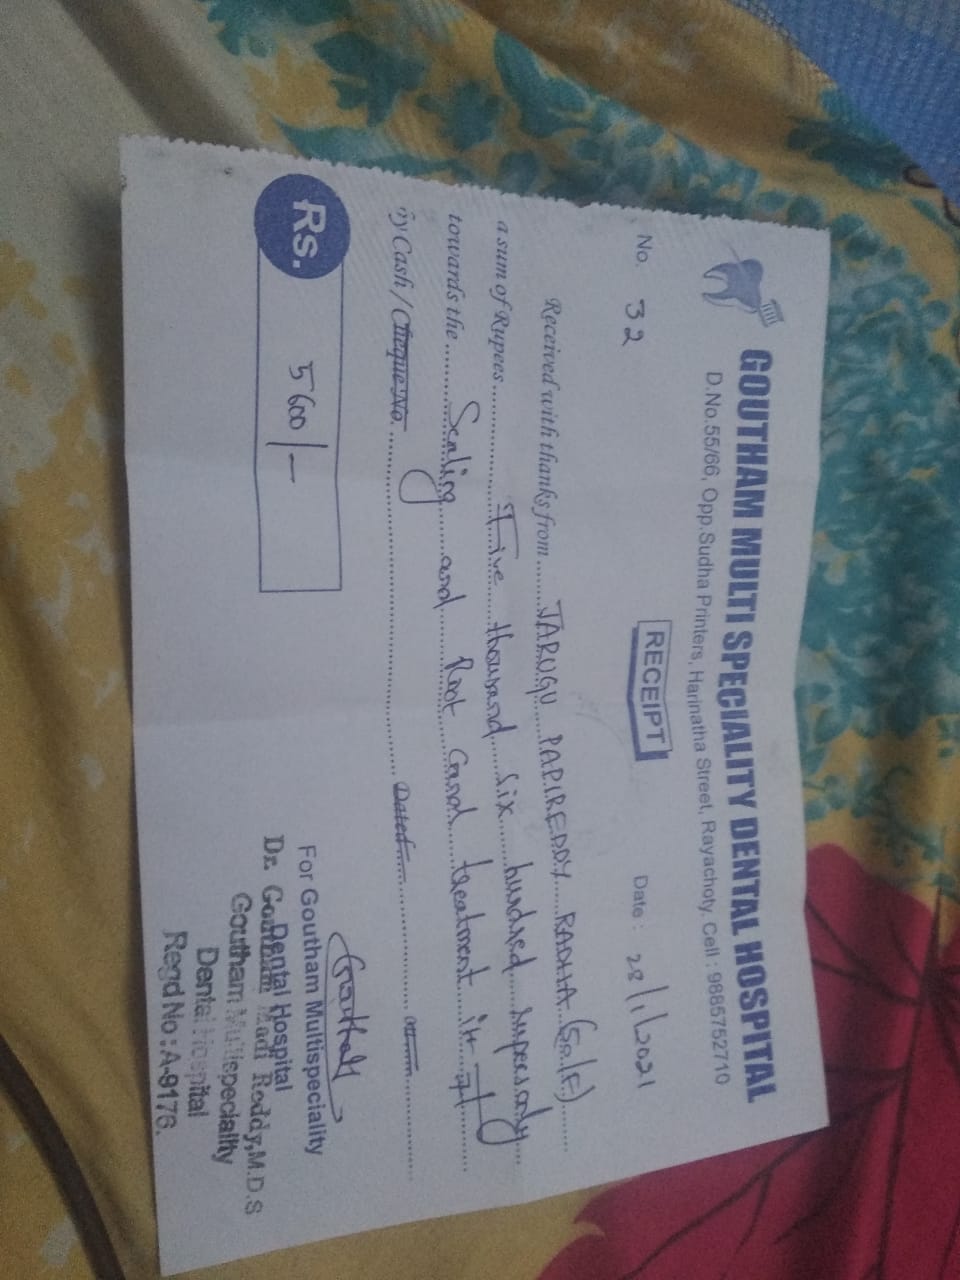 GOUTHAM MULTI SPECIALITY DENTAL HOSPITAL
D.No.55/66, Opp.Sudha Printers, Harinatha Street, Rayachoty, Cell : 9885752710
RECEIPT
No. 32 Date : 28/1/2021
Received with thanks from JARUGU PAPIREDDY RADHA
a sum of Rupees Five thousand six hundred rupees only
towards the Scaling and Root Canal treatment
by Cash / Cheque No. Dated
Rs. 5600/-
For Goutham Multispeciality
Dental Hospital
Dr. Goutham Madi Reddy, M.D.S
Goutham Multispeciality
Dental Hospital
Regd No : A-9176.